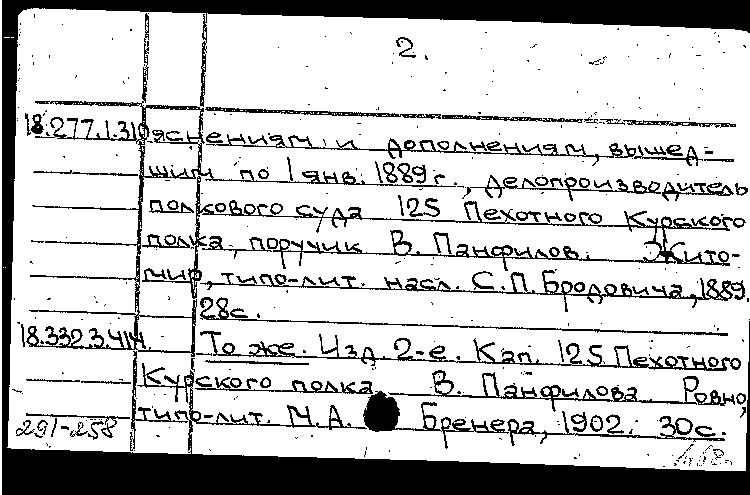 2.
18.277.1.310 яснениям и дополнениям, вышед-
шим по 1 янв. 1889 г., делопроизводитель
полкового суда 125 Пехотного Курского
полка, поручик В. Панфилов. Жито-
мир, типо-лит. насл. С.П. Бродовича, 1889.
28с.
18.332.3.414. То же. Изд. 2-е. Кап. 125 Пехотного
Курского полка В. Панфилова. Ровно,
типо-лит. М.А. Бренера, 1902. 30с.
291-258